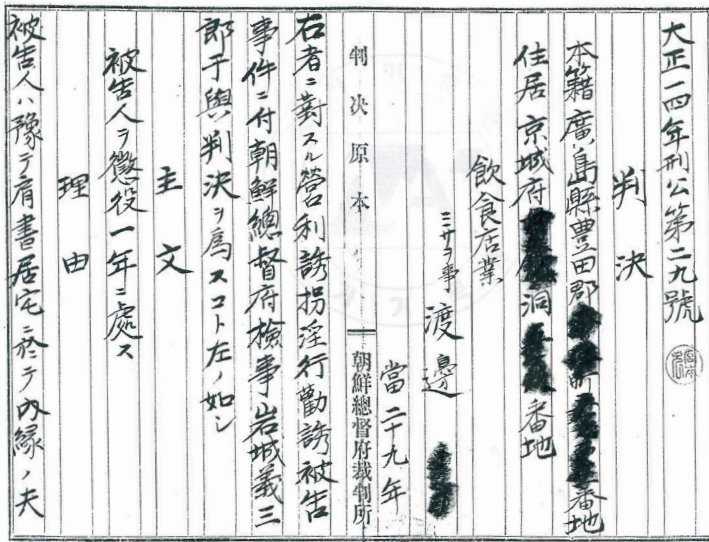 大正一四年刑公第二九號
判決
本籍廣島縣豊田郡 町 番地
住居京城府 洞 番地
飲食店業
ミサヲ事 渡邊
當二十九年
判決原本
朝鮮總督府裁判所
右者ニ對スル營利誘拐淫行勸誘被告
事件ニ付朝鮮總督府檢事岩城義三
郎干與判決ヲ爲スコト左ノ如シ
主文
被告人ヲ懲役一年ニ處ス
理由
被告人ハ豫テ肩書居宅ニ於テ内緣ノ夫